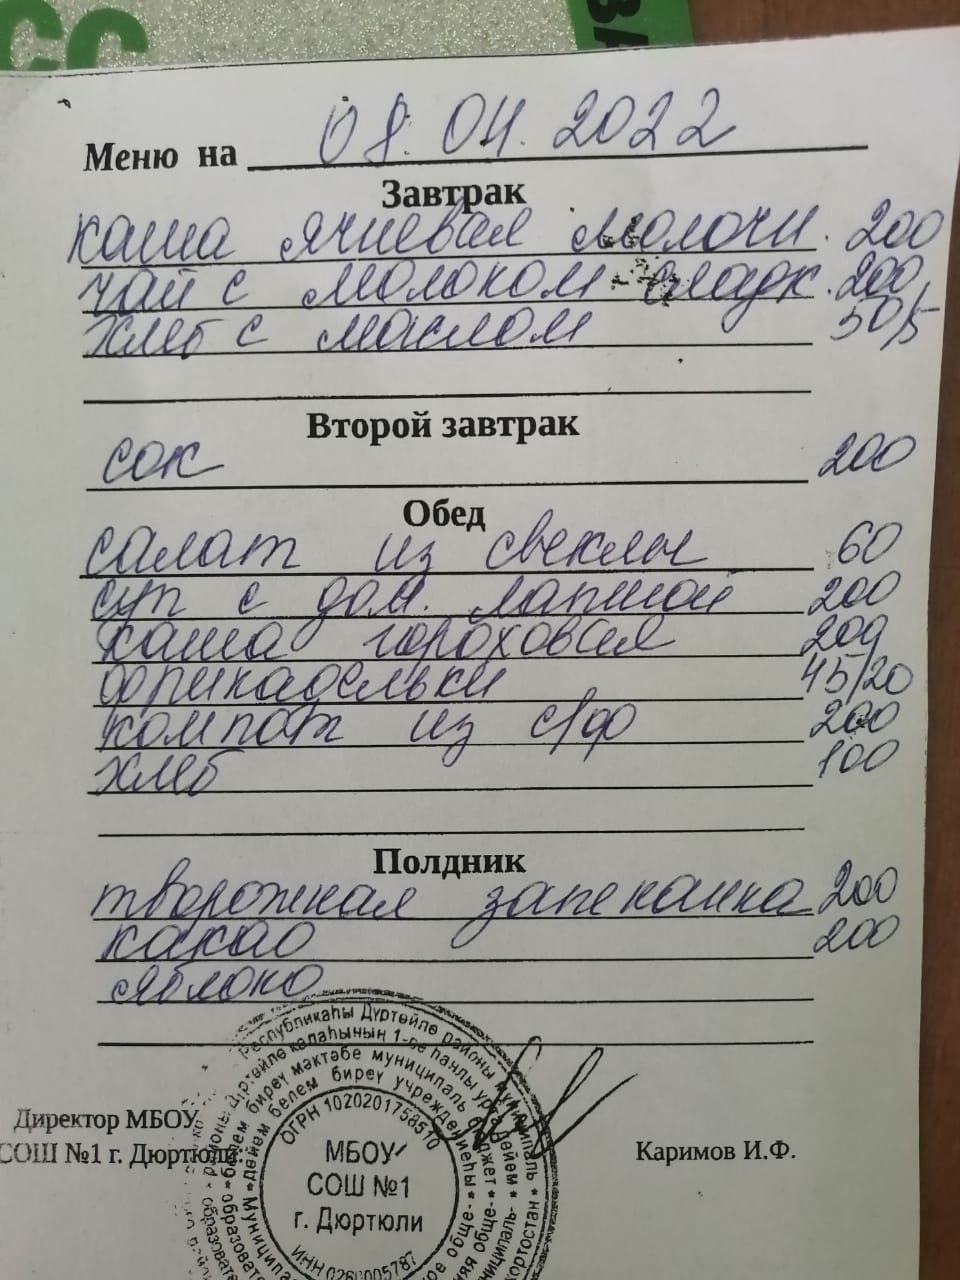 СС
ЗА
Меню на 08.04.2022
Завтрак
каша ячневая молочн. 200
чай с молоком сладк. 200
хлеб с маслом 50/5
Второй завтрак
сок 200
Обед
салат из свеклы 60
суп с дом. лапшой 200
каша гороховая 200
фрикадельки 45/20
компот из с/ф 200
хлеб 100
Полдник
творожная запеканка 200
какао 200
яблоко
Директор МБОУ
СОШ №1 г. Дюртюли:
Каримов И.Ф.
Республикаһы Дүртөйлө районы муниципаль
Дүртөйлө ҡалаһының 1-се һанлы урта дөйөм
белем биреү мәктәбе муниципаль бюджет
дөйөм белем биреү учреждениеһы
ОГРН 1020201758510
МБОУ
СОШ №1
г. Дюртюли
ИНН 0260005787